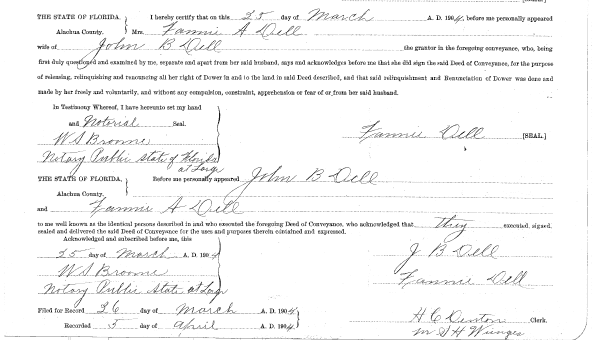 THE STATE OF FLORIDA, I hereby certify that on this 25 day of March A. D. 1904, before me personally appeared
Alachua County. Mrs. Fannie A Dell
wife of John B Dell the grantor in the foregoing conveyance, who, being
first duly questioned and examined by me, separate and apart from her said husband, says and acknowledges before me that she did sign the said Deed of Conveyance, for the purpose
of releasing, relinquishing and renouncing all her right of Dower in and to the land in said Deed described, and that said relinquishment and Renunciation of Dower was done and
made by her freely and voluntarily, and without any compulsion, constraint, apprehension or fear of or from her said husband.
In Testimony Whereof, I have hereunto set my hand
and Notorial Seal.
W S Broome
Fannie Dell [SEAL]
Notary Public State of Florida
at Large
THE STATE OF FLORIDA, Before me personally appeared John B Dell
Alachua County.
and Fannie A Dell
to me well known as the identical persons described in and who executed the foregoing Deed of Conveyance, who acknowledged that they executed signed.
sealed and delivered the said Deed of Conveyance for the uses and purposes therein contained and expressed.
Acknowledged and subscribed before me, this
25 day of March A. D. 1904
J B Dell
W S Broome
Fannie Dell
Notary Public State at Large
Filed for Record 26 day of March A. D. 1904
H C Denton Clerk.
Recorded 5 day of April A. D. 1904